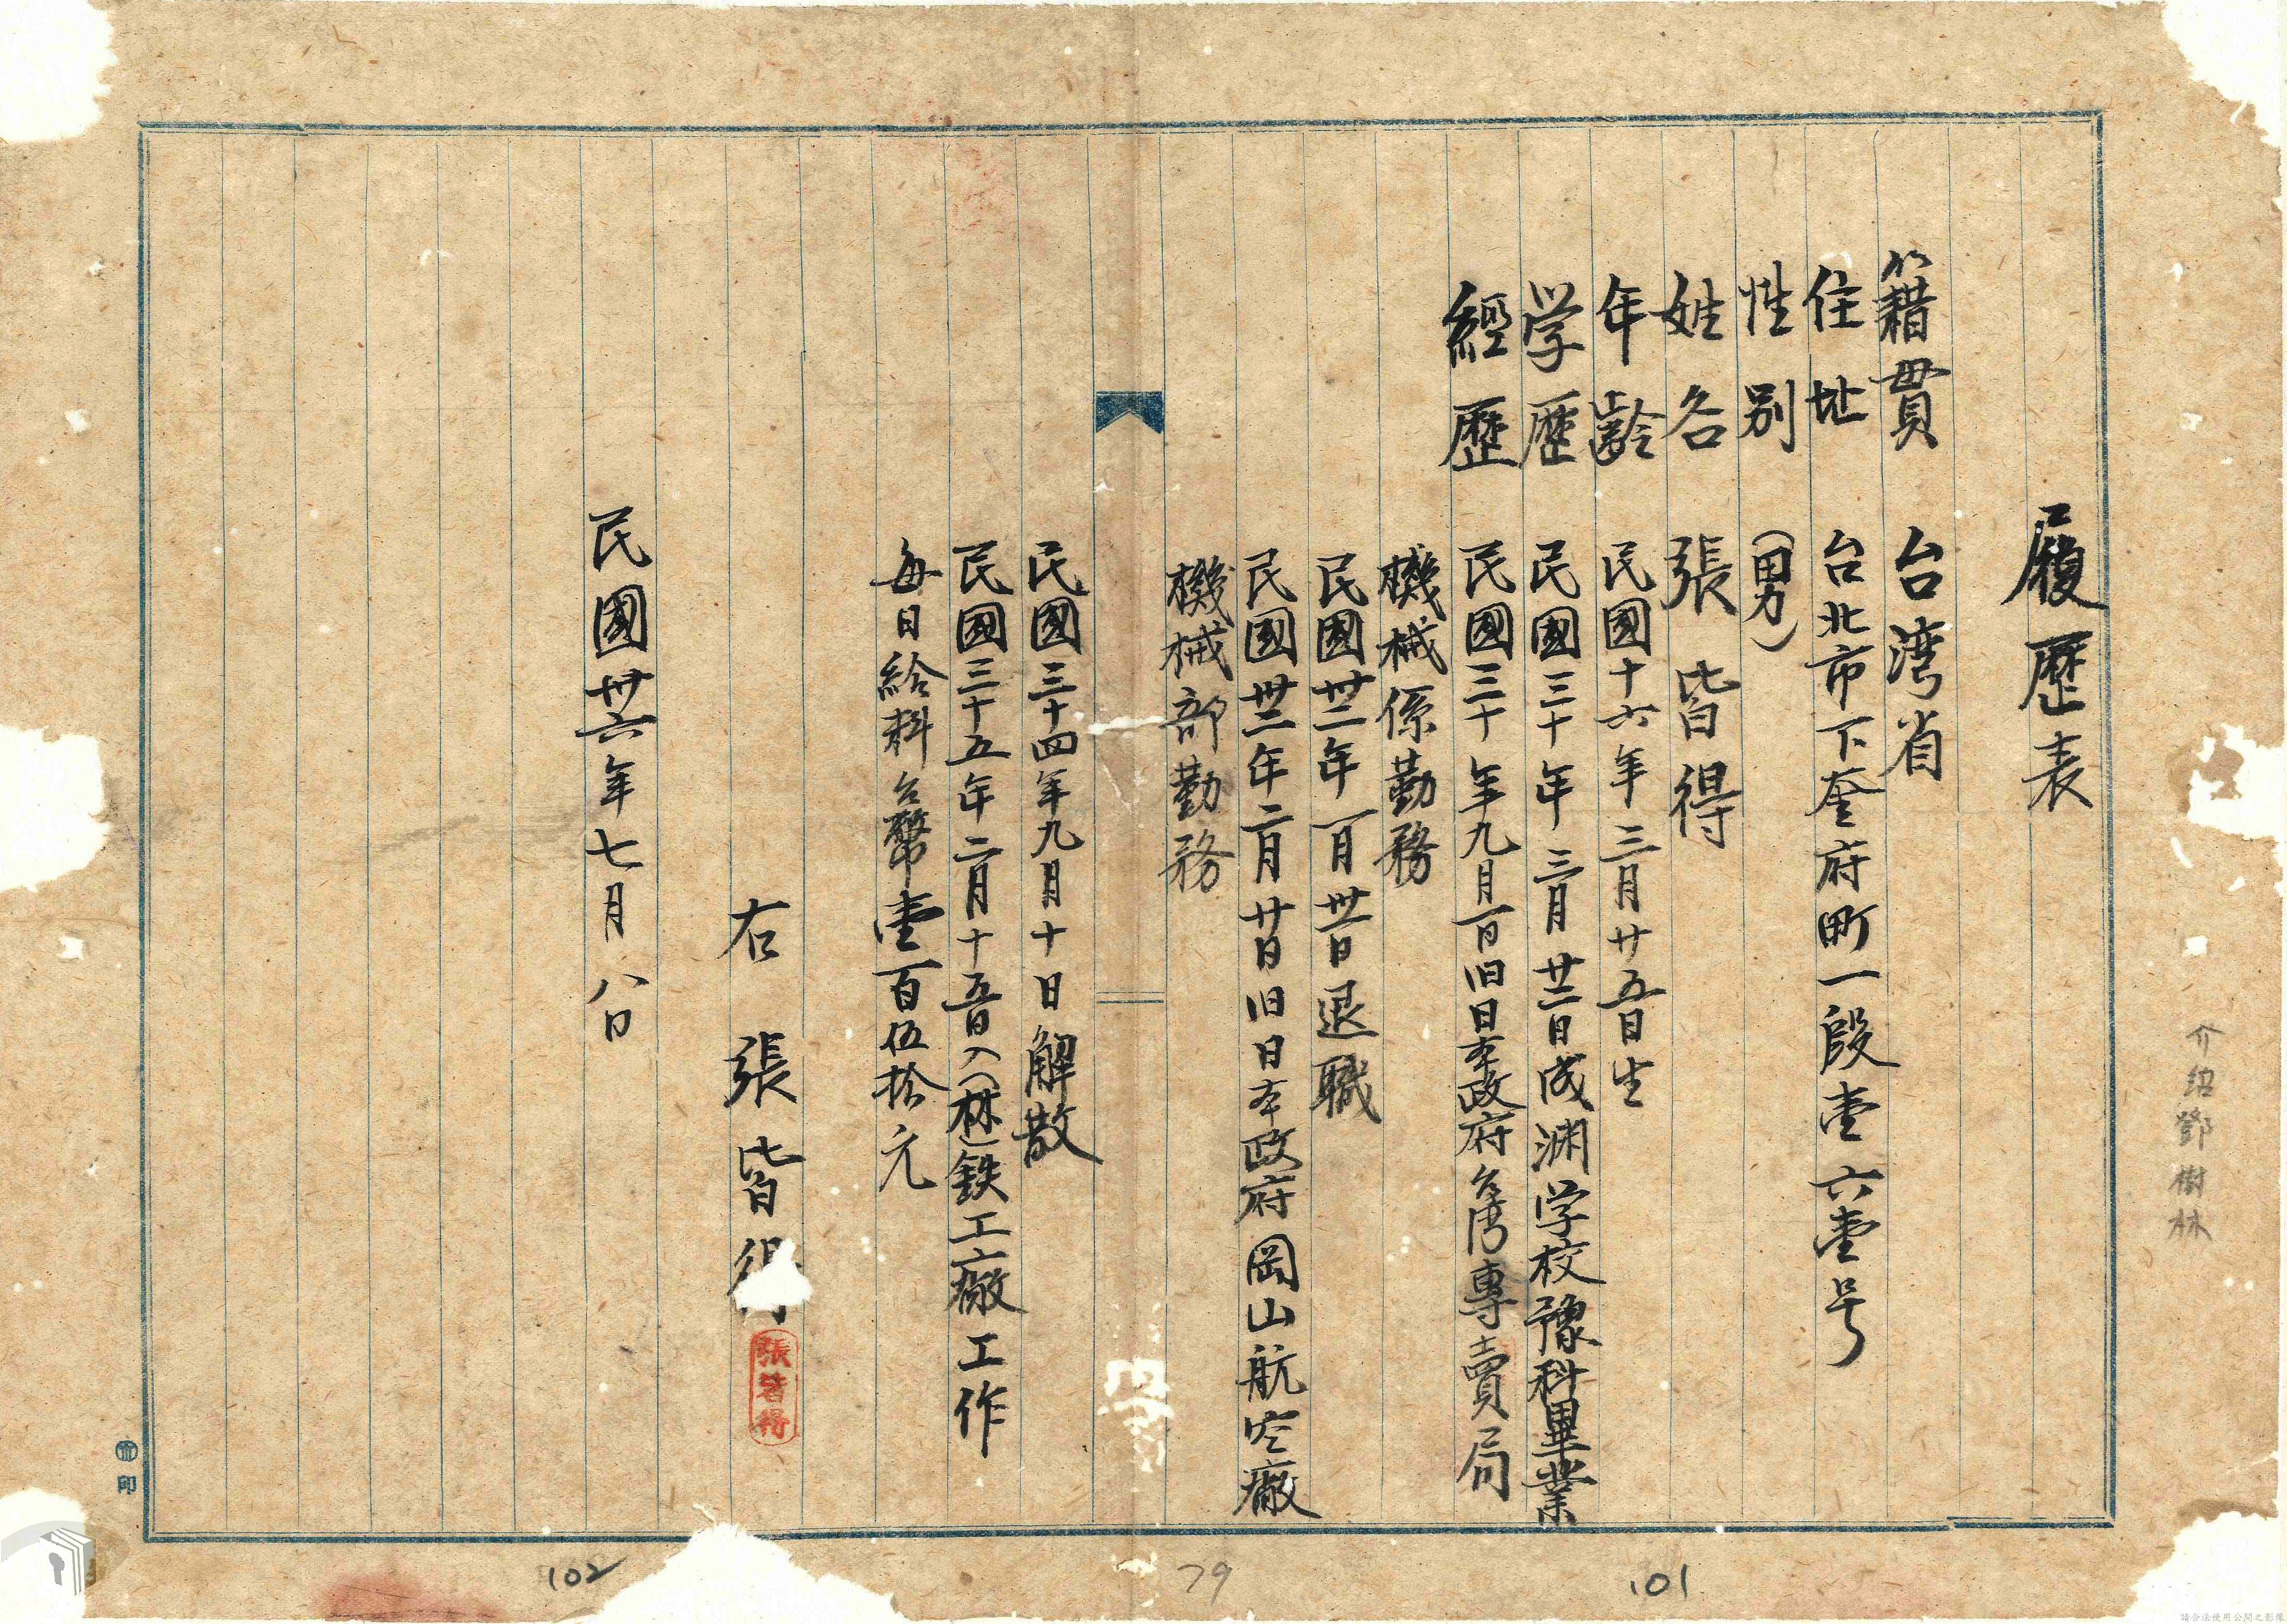 履歷表
籍貫 台湾省
住址 台北市下奎府町一段壹六壹号
性別 (男)
姓名 張皆得
年齡 民國十六年三月廿五日生
学歷 民國三十年三月廿二日成渊学校豫科畢業
經歷 民國三十年九月一日旧日本政府台湾專賣局
機械係勤務
民國卅二年一月卅一日退職
民國卅二年二月廿日旧日本政府岡山航空廠
機械部勤務
民國三十四年九月十日解散
民國三十五年二月十五日入(林)鉄工廠工作
每日給料台幣壹百伍拾元
右 張皆得
張皆得
民國卅六年七月八日
介紹鄧樹林
印
101
79
102
請合法使用公開之影像